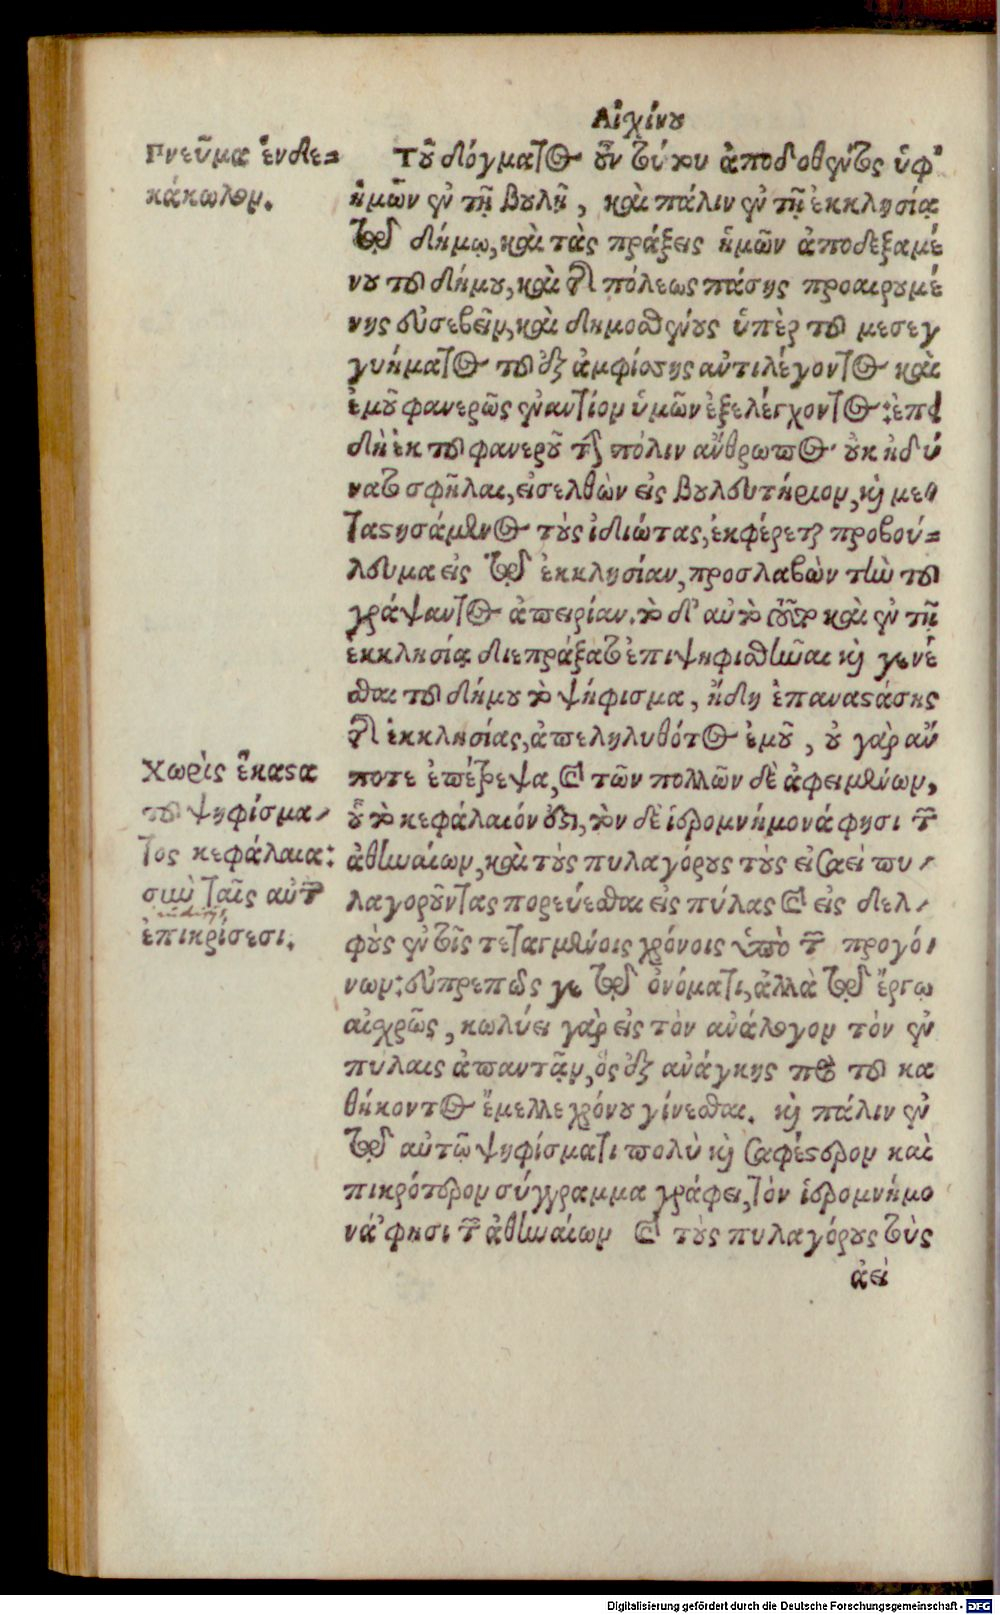 Αἰχίνου
Πνεῦμα ἑνδε=
κάκωλον.
Τοῦ δόγματος οὖν τούτου ἀποδοθέντος ὑφ᾽
ἡμῶν ἐν τῇ βουλῇ, καὶ πάλιν ἐν τῇ ἐκκλησίᾳ
τῷ δήμῳ, καὶ τὰς πράξεις ἡμῶν ἀποδεξαμέ
νου τοῦ δήμου, καὶ τῆς πόλεως πάσης προαιρουμέ
νης εὐσεβεῖν, καὶ δημοσθένους ὑπὲρ τοῦ μεσεγ
γυήματος τοῦ ἐξ ἀμφίσσης ἀντιλέγοντος καὶ
ἐμοῦ φανερῶς ἐναντίον ὑμῶν ἐξελέγχοντος: ἐπει
δὴ ἐκ τοῦ φανεροῦ τὴν πόλιν ἅνθρωπος οὐκ ἠδύ
νατο σφῆλαι, εἰσελθὼν εἰς βουλευτήριον, καὶ με
ταστησάμενος τοὺς ἰδιώτας, ἐκφέρεται προβού=
λευμα εἰς τὴν ἐκκλησίαν, προσλαβὼν τὴν τοῦ
γράψαντος ἀπειρίαν. τὸ δ᾽ αὐτὸ τοῦτο καὶ ἐν τῇ
ἐκκλησίᾳ διεπράξατο ἐπιψηφισθῆναι καὶ γενέ
σθαι τοῦ δήμου τὸ ψήφισμα, ἤδη ἐπαναστάσης
τῆς ἐκκλησίας, ἀπεληλυθότος ἐμοῦ, οὐ γὰρ ἄν
ποτε ἐπέτρεψα, καὶ τῶν πολλῶν δὲ ἀφειμένων,
Χωρὶς ἕκαστα
τοῦ ψηφίσμα
τος κεφάλαια:
σὺν ταῖς αὐτῶν
ἐπικρίσεσι.
οὗ τὸ κεφάλαιόν ἐστι, τὸν δὲ ἱερομνήμονά φησι τῶν
ἀθηναίων, καὶ τοὺς πυλαγόρους τοὺς εἰσαεὶ πυ
λαγοροῦντας πορεύεσθαι εἰς πύλας καὶ εἰς δελ
φοὺς ἐν τοῖς τεταγμένοις χρόνοις ὑπὸ τῶν προγό
νων: εὐπρεπῶς γε τῷ ὀνόματι, ἀλλὰ τῷ ἔργῳ
αἰσχρῶς, κωλύει γὰρ εἰς τὸν σύλλογον τὸν ἐν
πύλαις ἀπαντᾶν, ὃς ἐξ ἀνάγκης πρὸ τοῦ κα
θήκοντος ἔμελλε χρόνου γίνεσθαι. καὶ πάλιν ἐν
τῷ αὐτῷ ψηφίσματι πολὺ καὶ σαφέστερον καὶ
πικρότερον σύγγραμμα γράφει, τὸν ἱερομνήμο
νά φησι τῶν ἀθηναίων καὶ τοὺς πυλαγόρους τοὺς
ἀεὶ
Digitalisierung gefördert durch die Deutsche Forschungsgemeinschaft - DFG